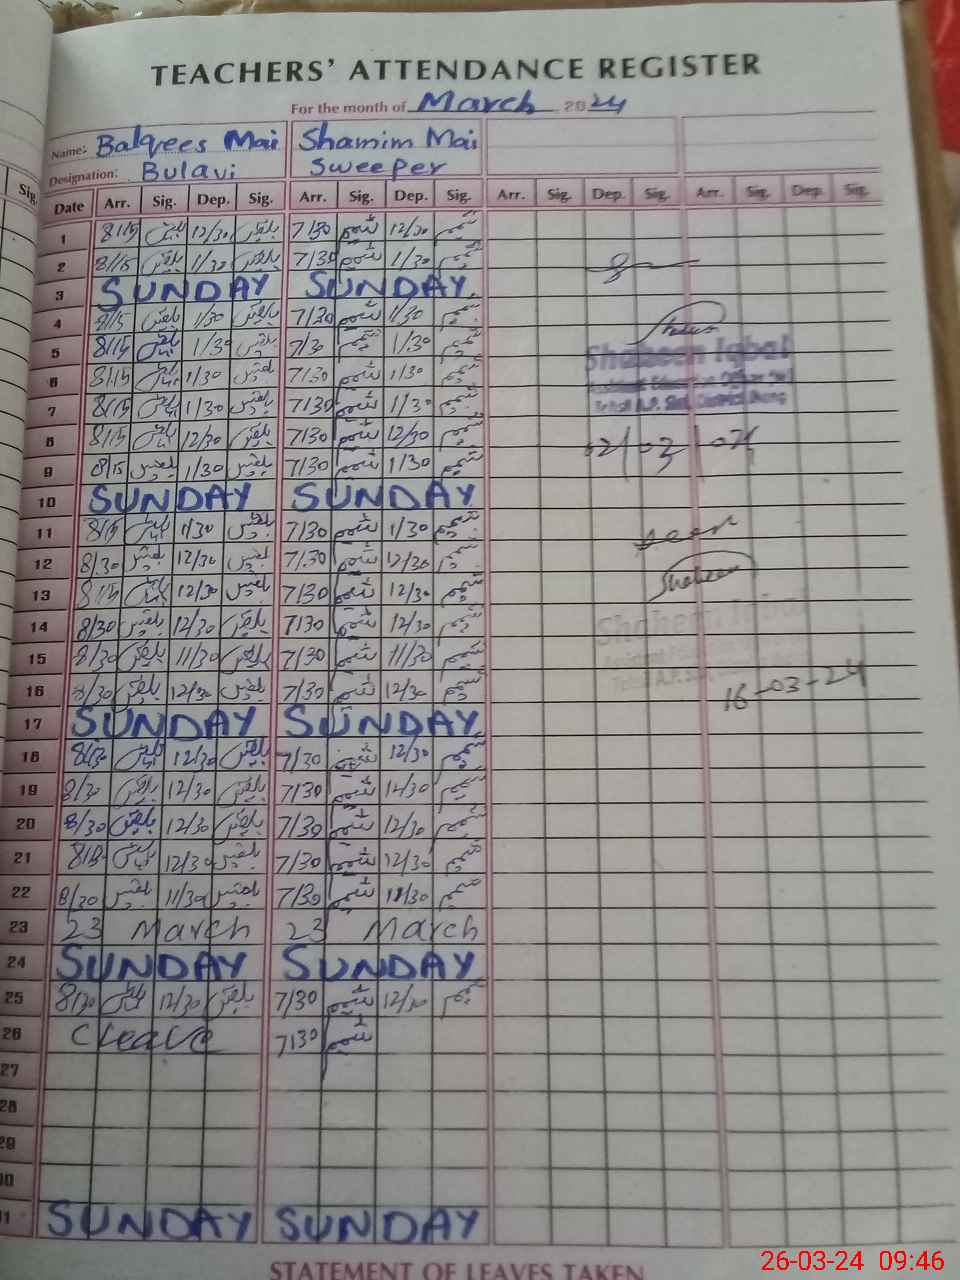 TEACHERS' ATTENDANCE REGISTER
For the month of March 2024
Name: Balqees Mai Shamim Mai
Designation: Bulavi Sweeper
Sig.
Date Arr. Sig. Dep. Sig. Arr. Sig. Dep. Sig. Arr. Sig. Dep. Sig. Arr. Sig. Dep. Sig.
1 8/15 بلقیس 12/30 بلقیس 7/30 شمیم 12/30 شمیم
2 8/15 بلقیس 1/30 بلقیس 7/30 شمیم 1/30 شمیم
3 SUNDAY SUNDAY
4 8/15 بلقیس 1/30 بلقیس 7/30 شمیم 1/30 شمیم
5 8/15 بلقیس 1/30 بلقیس 7/30 شمیم 1/30 شمیم
Shaheen Iqbal
6 8/15 بلقیس 1/30 بلقیس 7/30 شمیم 1/30 شمیم
Assistant Education Officer
7 8/15 بلقیس 1/30 بلقیس 7/30 شمیم 1/30 شمیم
Tehsil A.P. Sial, District Jhang
8 8/15 بلقیس 12/30 بلقیس 7/30 شمیم 12/30 شمیم
02/03/024
9 8/15 بلقیس 1/30 بلقیس 7/30 شمیم 1/30 شمیم
10 SUNDAY SUNDAY
11 8/15 بلقیس 1/30 بلقیس 7/30 شمیم 1/30 شمیم
seen
12 8/30 بلقیس 12/30 بلقیس 7/30 شمیم 12/30 شمیم
13 8/15 بلقیس 12/30 بلقیس 7/30 شمیم 12/30 شمیم
Shaheen
14 8/30 بلقیس 12/30 بلقیس 7/30 شمیم 12/30 شمیم
Shaheen Iqbal
15 8/30 بلقیس 11/30 بلقیس 7/30 شمیم 11/30 شمیم
Assistant
Tehsil A.P. Sial,
16 8/30 بلقیس 12/30 بلقیس 7/30 شمیم 12/30 شمیم
16-03-24
17 SUNDAY SUNDAY
18 8/30 بلقیس 12/30 بلقیس 7/30 شمیم 12/30 شمیم
19 8/30 بلقیس 12/30 بلقیس 7/30 شمیم 12/30 شمیم
20 8/30 بلقیس 12/30 بلقیس 7/30 شمیم 12/30 شمیم
21 بلقیس 12/30 بلقیس 7/30 شمیم 12/30 شمیم
22 8/30 بلقیس 11/30 بلقیس 7/30 شمیم 11/30 شمیم
23 23 March 23 March
24 SUNDAY SUNDAY
25 8/30 بلقیس 12/30 بلقیس 7/30 شمیم 12/30 شمیم
26 C leave 7/30 شمیم
27
28
29
30
31 SUNDAY SUNDAY
STATEMENT OF LEAVES TAKEN
26-03-24 09:46